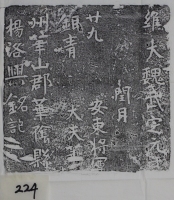 維大魏武定
閏月
廿九 安東將
青 大夫
州華山郡華陰縣
楊 興銘記
224